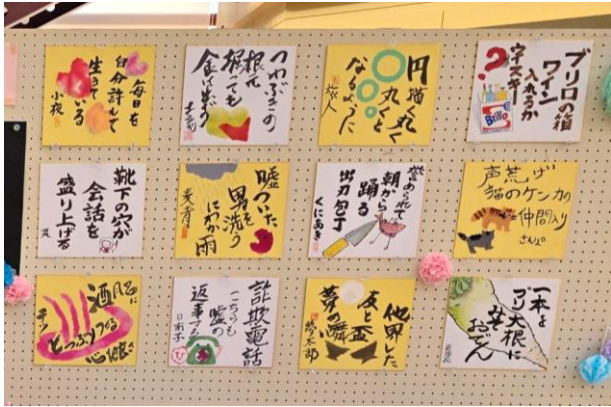 毎日を
自分許して
生きている
小夜
つわぶきの
根元
掘っても
円描く
丸く丸くと
なるように
旅人
ブリロの箱
ワイン
入れるか
ウイスキー
?
Brillo
靴下の穴が
会話を
盛り上げる
嘘ついた
男を洗う
にわか雨
麦青
誉められて
朝から
踊る
出刃包丁
くにあき
声荒げ
猫のケンカの
仲間入り
酒風呂に
とっぷりつかる
心地よさ
詐欺電話
こちらも
嘘の
返事する
日南子
他界した
友と盃
夢の瞬
夢太郎
一本を
ブリ大根に
おでん